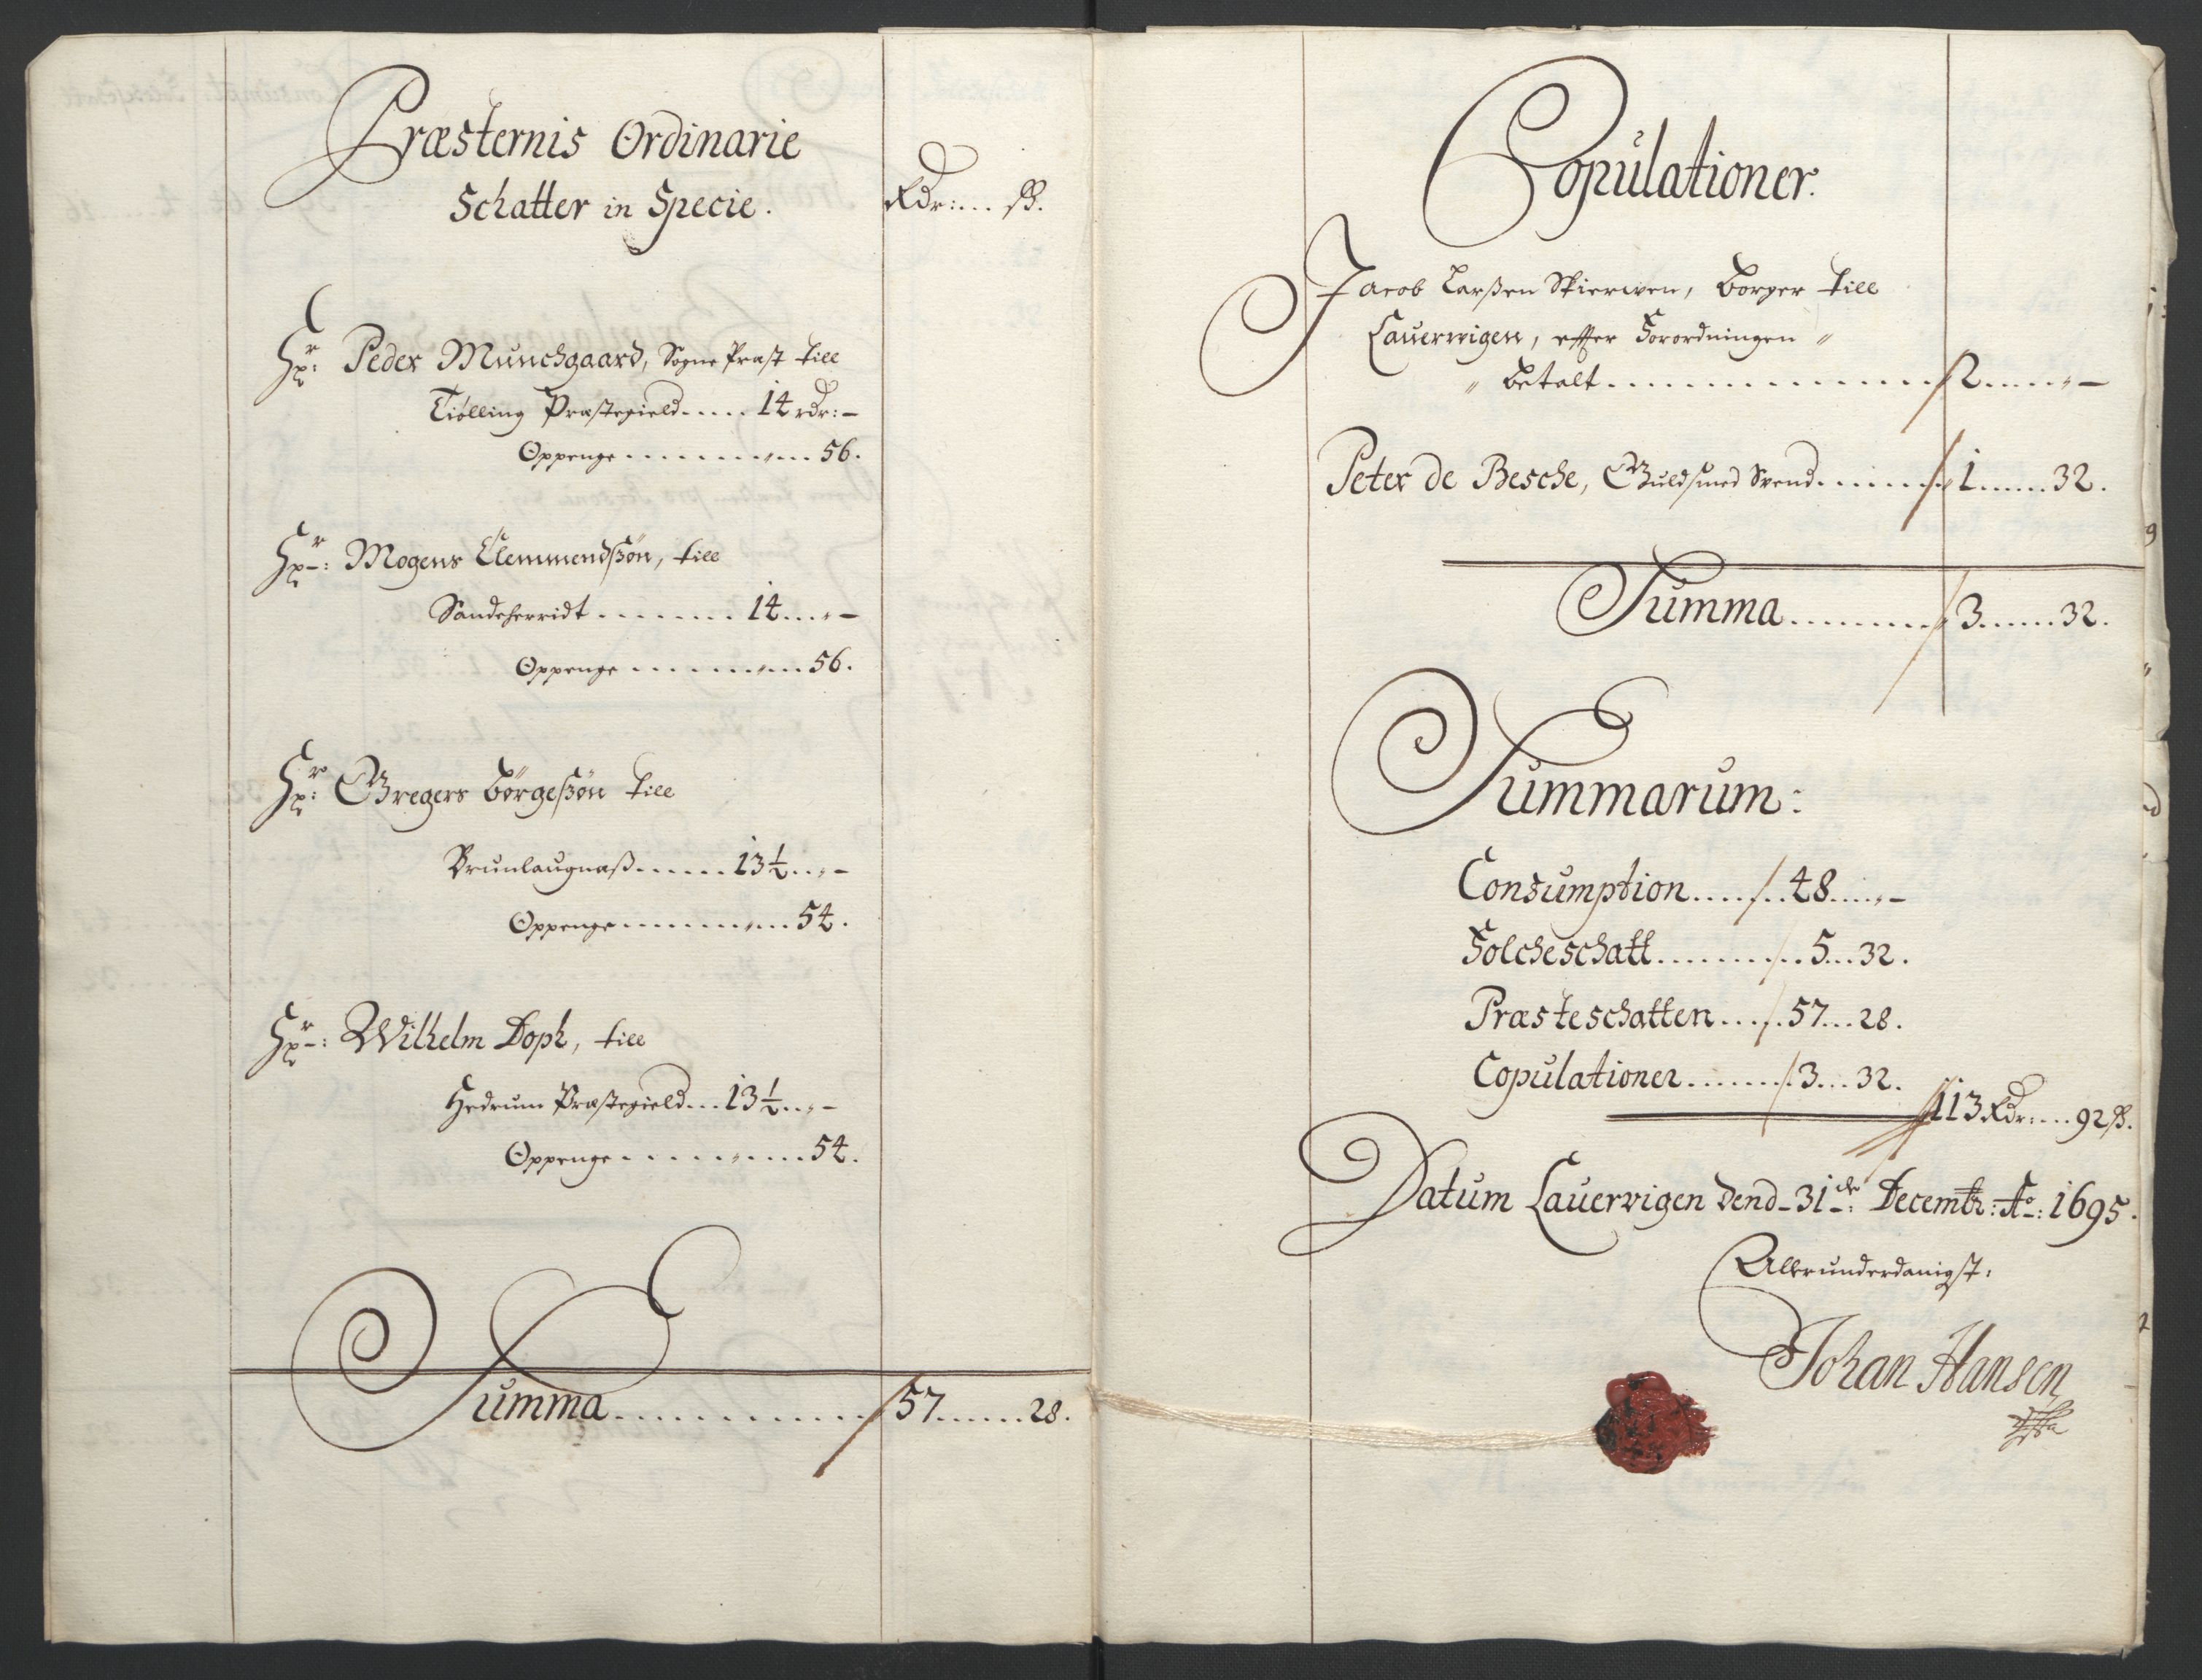 Præsternis Ordinarie
Schatter in Specie.
Rdr: ... ß.
Hr: Peder Munchgaard, Sogne Præst till
Tiølling Præstegield ..... 14 rdr: –
Oppenge ......... „ ... 56.
Hr: Mogens Clemmendßøn, till
Sandeherridt ....... 14 ... „ –
Oppenge ....... „ ... 56.
Hr: Gregers Børgeßøn till
Brunlaugnaß ...... 13½ .. „ –
Oppenge ......... „ ... 54.
Hr: Wilhelm Doph, till
Hedrum Præstegield ... 13½ .. „ –
Oppenge ...... „ .... 54.
Summa ............. 57 ....... 28.
Copulationer.
Jacob Larßen Skierwen, Borger till
Lauervigen, effter Forordningen „
„ betalt ................ 2 ..... „ –
Peter de Besche, Guldsmed Svend ....... 1 ...... 32.
Summa ......... 3 ...... 32.
Summarum:
Consumption ...... 48 .... „ –
Folcheschatt ......... 5 ... 32.
Præsteschatten ..... 57 ... 28.
Copulationer ........ 3 ... 32.
113 Rdr: ... 92 ß.
Datum Lauervigen dend 31de: Decembr: Ao: 1695.
Allerunderdanigst:
Johan Hansen